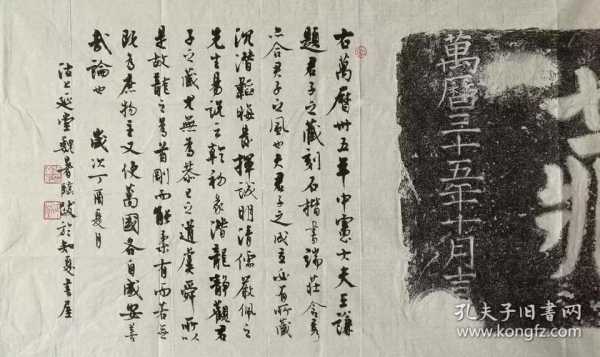 萬曆三十五年十月吉
右萬曆卅五年中憲士夫王謙
題君子之藏刻石楷書端莊含秀
六合君子之風也夫君子之成立必有所藏
沉潛韜晦發揮誠明清儒嚴佩之
先生易說云乾初象潛龍靜觀君
子之藏才無為恭己之道虞舜所以
是故龍之為首剛而能柔有而若無
既为庶物主又使萬國各自咸寧善
哉論也 歲次丁酉夏月
沽上延堂魏暑臨跋於知夏書屋
孔夫子旧书网
www.kongfz.com